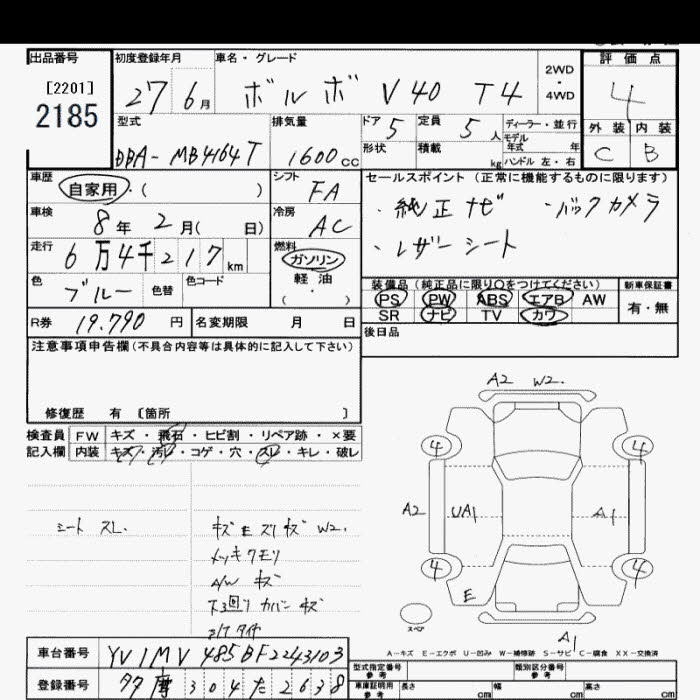 出品番号 初度登録年月 車名・グレード 評価点
[2201]
2185
27 6月 ボルボ V40 T4 2WD・4WD 4
型式 排気量 ドア 5 定員 5人 ディーラー・並行 外装 内装
モデル年式 年
DBA-MB4164T 1600cc 形状 積載 kg ハンドル 左・右 C B
車歴 自家用・( ) シフト FA セールスポイント (正常に機能するものに限ります)
・純正ナビ ・バックカメラ
車検 8年2月( 日) 冷房 AC
・レザーシート
走行 6万4千217km 燃料 ガソリン・軽油 ( )
色 ブルー 色替 色コード
装備品 (純正品に限り○をつけてください) 新車保証書
PS PW ABS エアB AW 有・無
SR ナビ TV カワ
R券 19.790円 名変期限 月 日 後日品
注意事項申告欄(不具合内容等は具体的に記入して下さい)
修復歴 有 〔箇所 〕
検査員 FW キズ・飛石・ヒビ割・リペア跡・×要
記入欄 内装 キズ・汚レ・コゲ・穴・スレ・キレ・破レ
A2 W2.
4 4
A2 UA1 A1
4 4
E
スペア
A1
シート スレ キズ E スリキズ W2.
メッキクモリ
A/W キズ
下回りカバーキズ
A-キズ E-エクボ U-凹み W-補修跡 S-サビ C-腐食 XX-交換済
車台番号 YV1MV485BF2243103
型式指定番号 参考 類別区分番号 参考
登録番号 多摩 304 た 2638
車庫証明用 参考 長さ cm 幅 cm 高さ cm